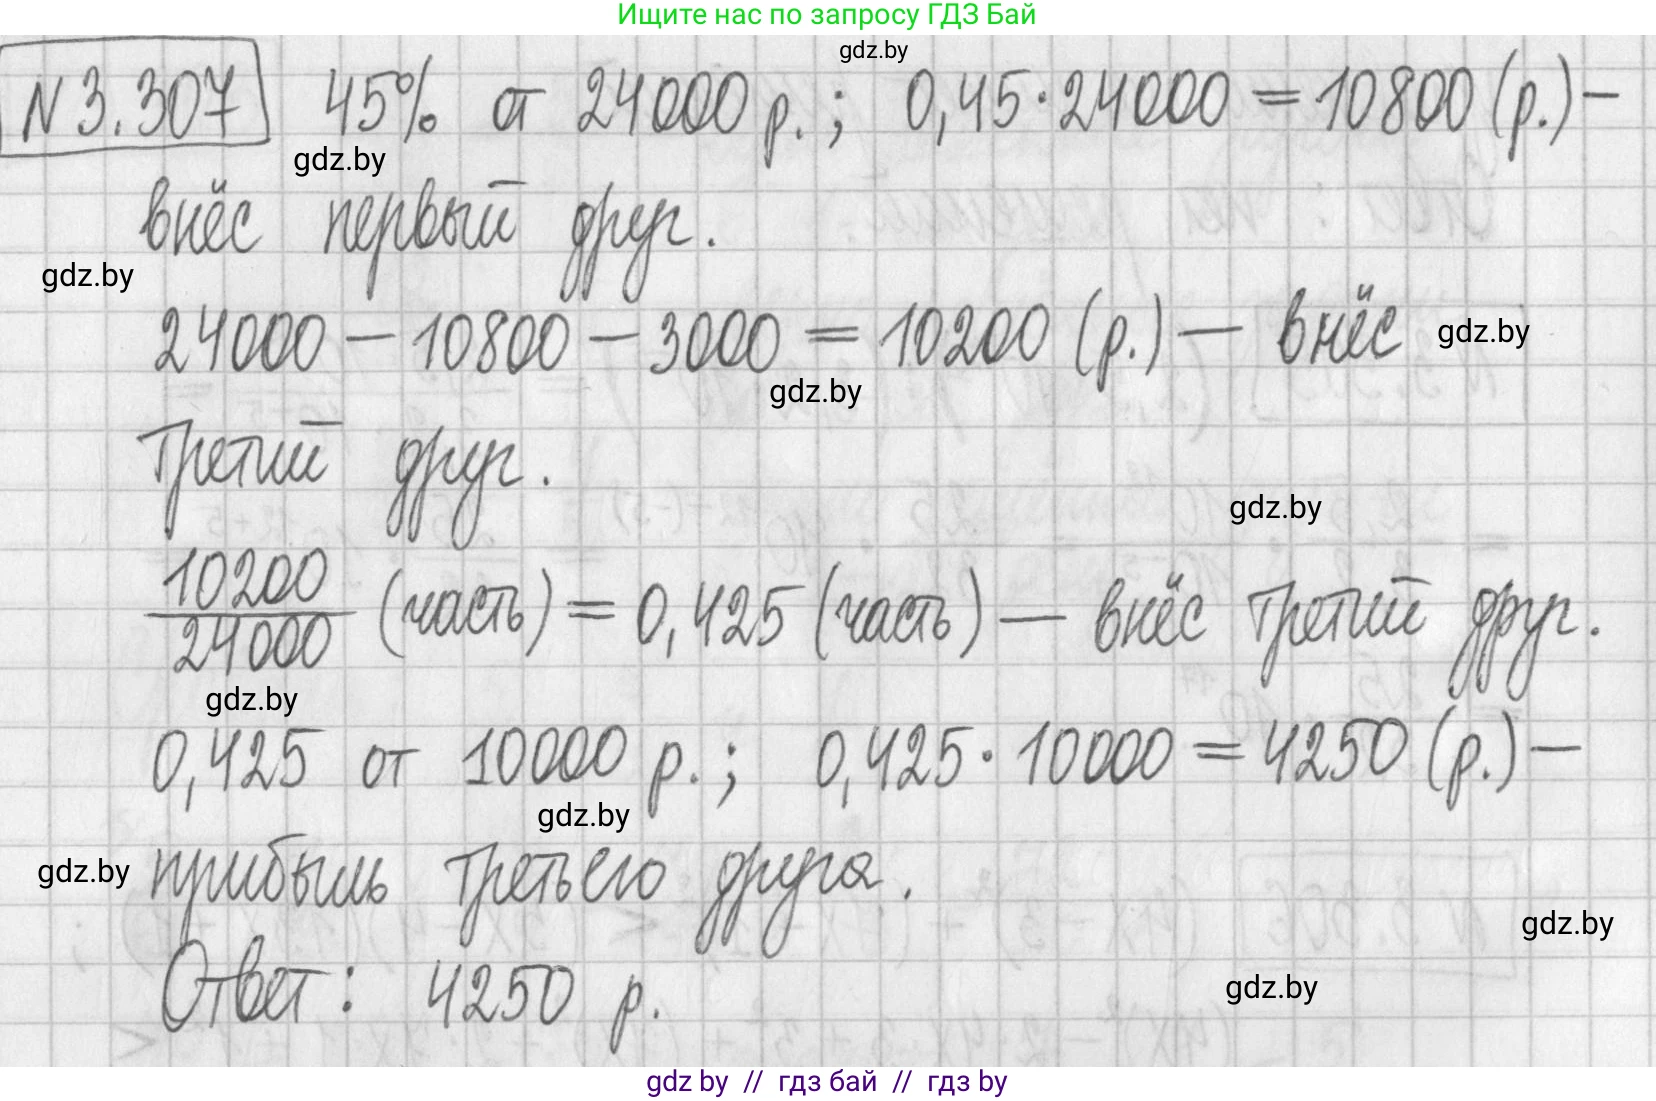 Ищите нас по запросу ГДЗ Бай
gdz.by
N 3.307 45% от 24000 р. ; 0,45·24000 = 10800 (р.) –
gdz.by
внёс первый друг.
gdz.by
24000 – 10800 – 3000 = 10200 (р.) – внёс
gdz.by
gdz.by
третий друг.
gdz.by
10200/24000 (часть) = 0,425 (часть) – внёс третий друг.
gdz.by
0,425 от 10000 р. ; 0,425·10000 = 4250 (р.) –
gdz.by
gdz.by
прибыль третьего друга.
gdz.by
Ответ: 4250 р.
gdz.by
gdz by // гдз бай // гдз by